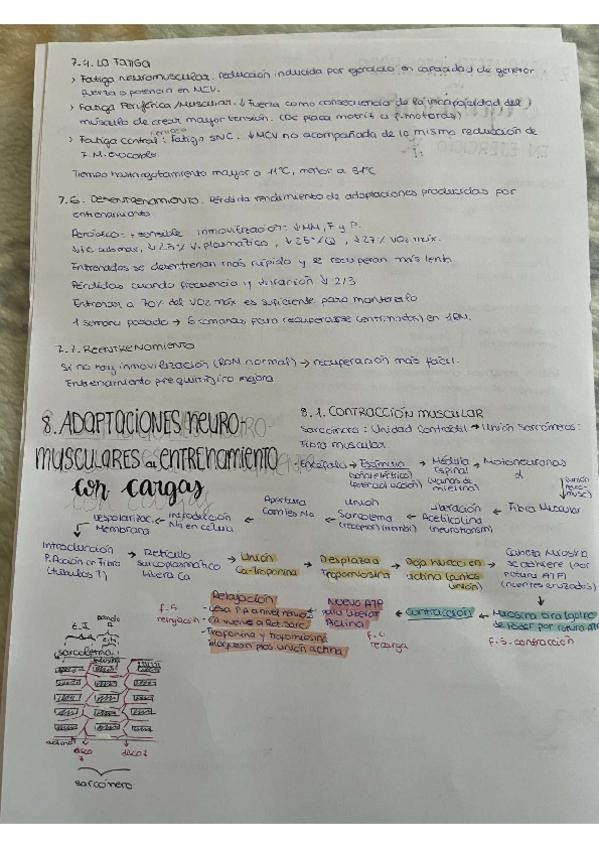 7.4. LA FATIGA
> Fatiga neuromuscular. reducción inducida por ejercicio en capacidad de generar
fuerza o potencia en MCV.
> Fatiga Periférica/Muscular. ↓ Fuerza como consecuencia de la incapacidad del
músculo de crear mayor tensión. (De placa motriz a P. motoras)
> Fatiga central: Fatiga SNC. ↓ MCV no acompañada de la misma reducción de
F.M. evocable.
Tiempo hasta agotamiento mayor a 11°C, menor a 31°C
7.6. DESENTRENAMIENTO. Pérdida rendimiento de adaptaciones producidas por
entrenamiento
Aeróbico: + sensible inmovilización: ↓MM, F y P.
submax, ↓ V. plasmático, ↓25% Q, ↓27% VO2 máx.
Entrenados se desentrenan más rápido y se recuperan más lento
Pérdidas cuando frecuencia y duración ↓ 2/3
Entrenar a 70% del VO2 máx es suficiente para mantenerlo
1 semana parado → 6 semanas para recuperarse (entrenados) en 1RM.
7.7. REENTRENAMIENTO
Si no hay inmovilización (ROM normal) → recuperación más fácil.
Entrenamiento prequirúrgico mejora
8. ADAPTACIONES NEURO
MUSCULARES al ENTRENAMIENTO
con cargas
8.1. CONTRACCIÓN MUSCULAR
Sarcómero: Unidad Contráctil → Unión Sarcómeros:
Fibra muscular.
Encéfalo → Estímulo → Médula Espinal → Motoneuronas α
(señal eléctrica) (potencial acción)
(vainas de mielina)
(unión neuro-musc)
Despolarizac. Membrana ← Introducción Na en célula ← Apertura canales Na ← Unión Sarcolema (receptor membr) ← Liberación Acetilcolina (neurotransm) ← Fibra Muscular
Introducción P. Acción en Fibra (túbulos T) → Retículo sarcoplasmático libera Ca → Unión Ca-Troponina → Desplaza a Tropomiosina → Deja hueco en actina (puntos unión) → Cabeza Miosina se adhiere (por rotura ATP) (puentes cruzados)
Relajación ← Nuevo ATP para liberar Actina ← Contracción ← Miosina tira (golpe de poder por rotura ATP)
- Cesa P.A a nivel nervioso
- Ca vuelve a Ret. Sarc.
- Troponina y tropomiosina bloquean ptos. unión actina
F. R. relajación
F. C. recarga
F. S. contracción
Banda A
Z. I
Z. H
sarcolema
miosina
actina
disco Z
disco Z
sarcómero